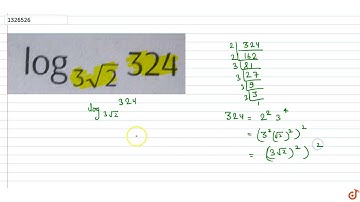 1326526
log 3√2 324
log 3√2 324
2 | 324
2 | 162
3 | 81
3 | 27
3 | 9
3 | 3
1
324 = 2² 3⁴
= (3² (√2)²)²
= (3√2)²)²